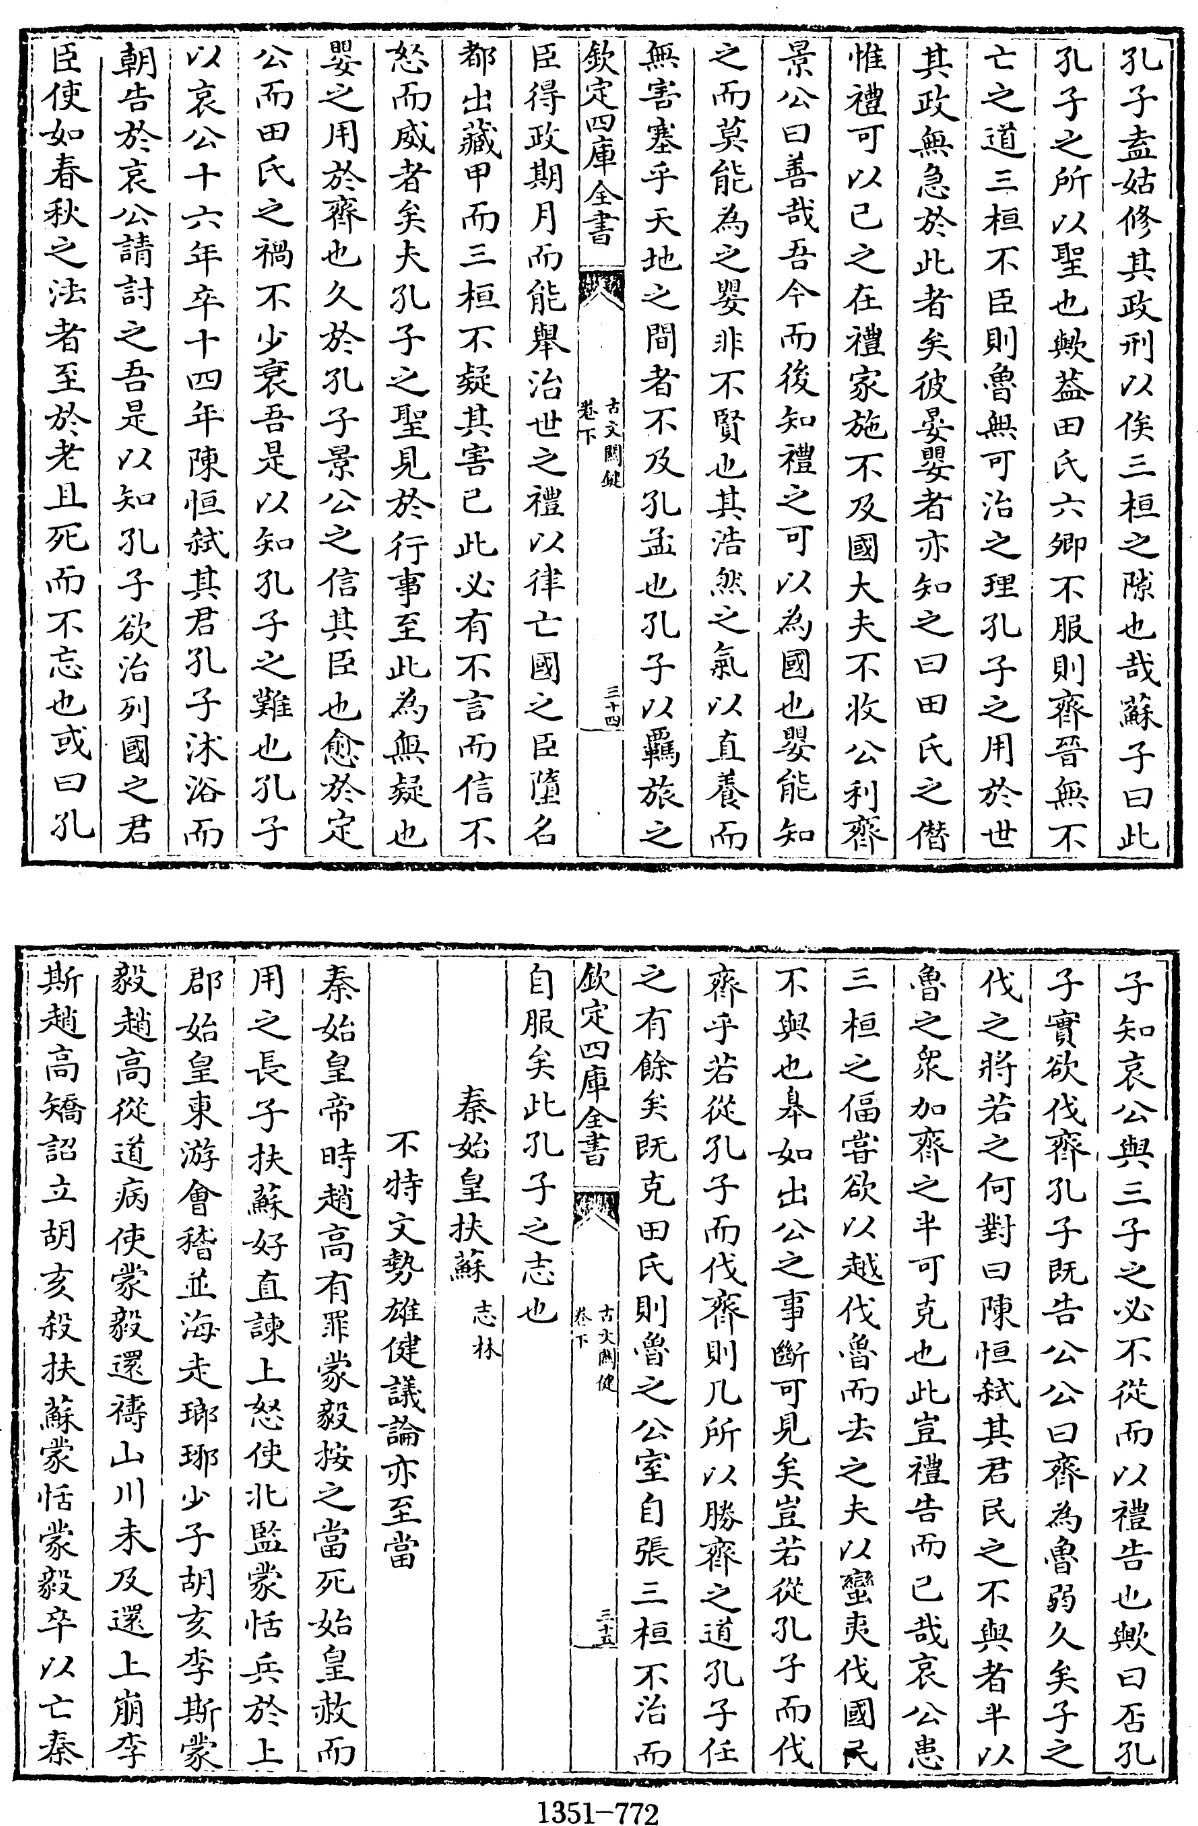 孔子盍姑修其政刑以俟三桓之隙也哉蘇子曰此
孔子之所以聖也歟葢田氏六卿不服則齊晉無不
亡之道三桓不臣則魯無可治之理孔子之用於世
其政無急於此者矣彼晏嬰者亦知之曰田氏之僭
惟禮可以已之在禮家施不及國大夫不收公利齊
景公曰善哉吾今而後知禮之可以為國也嬰能知
之而莫能為之嬰非不賢也其浩然之氣以直養而
無害塞乎天地之間者不及孔孟也孔子以羈旅之
欽定四庫全書
古文關鍵
卷下
三十四
臣得政期月而能舉治世之禮以律亡國之臣墮名
都出藏甲而三桓不疑其害已此必有不言而信不
怒而威者矣夫孔子之聖見於行事至此為無疑也
嬰之用於齊也久於孔子景公之信其臣也愈於定
公而田氏之禍不少衰吾是以知孔子之難也孔子
以哀公十六年卒十四年陳恒弑其君孔子沐浴而
朝告於哀公請討之吾是以知孔子欲治列國之君
臣使如春秋之法者至於老且死而不忘也或曰孔
子知哀公與三子之必不從而以禮告也歟曰否孔
子實欲伐齊孔子既告公公曰齊為魯弱久矣子之
伐之將若之何對曰陳恒弑其君民之不與者半以
魯之衆加齊之半可克也此豈禮告而已哉哀公患
三桓之偪嘗欲以越伐魯而去之夫以蠻夷伐國民
不與也皋如出公之事斷可見矣豈若從孔子而伐
齊乎若從孔子而伐齊則凡所以勝齊之道孔子任
之有餘矣既克田氏則魯之公室自張三桓不治而
欽定四庫全書
古文關鍵
卷下
三十五
自服矣此孔子之志也
秦始皇扶蘇 志林
不特文勢雄健議論亦至當
秦始皇帝時趙高有罪蒙毅按之當死始皇赦而
用之長子扶蘇好直諫上怒使北監蒙恬兵於上
郡始皇東游會稽並海走瑯琊少子胡亥李斯蒙
毅趙高從道病使蒙毅還禱山川未及還上崩李
斯趙高矯詔立胡亥殺扶蘇蒙恬蒙毅卒以亡秦
1351-772